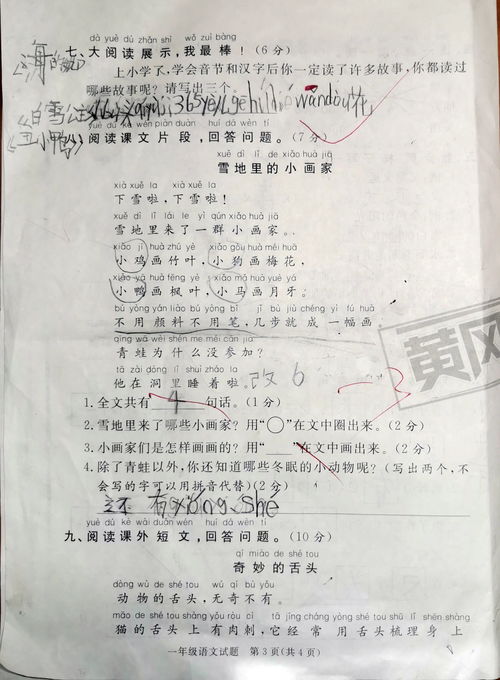 dà yuè dú zhǎn shì wǒ zuì bàng
七、大阅读展示,我最棒!(6分)
上小学了,学会音节和汉字后你一定读了许多故事,你都读过
哪些故事呢?请写出三个。
《海的
《白雪公主
《丑小鸭》
yuè dú kè wén piàn duàn huí dá wèn tí
阅读课文片段,回答问题。(7分)
xuě dì lǐ de xiǎo huà jiā
雪地里的小画家
xià xuě la xià xuě la
下雪啦,下雪啦!
xuě dì lǐ lái le yì qún xiǎo huà jiā
雪地里来了一群小画家。
xiǎo jī huà zhú yè xiǎo gǒu huà méi huā
小鸡画竹叶,小狗画梅花,
xiǎo yā huà fēng yè xiǎo mǎ huà yuè yá
小鸭画枫叶,小马画月牙。
bú yòng yán liào bú yòng bǐ jǐ bù jiù chéng yì fú huà
不用颜料不用笔,几步就成一幅画
qīng wā wèi shén me méi cān jiā
青蛙为什么没参加?
tā zài dòng lǐ shuì zháo la
他在洞里睡着啦。 改6
-3
1.全文共有 4 句话。(1分)
2.雪地里来了哪些小画家?用“○”在文中圈出来。(2分)
3.小画家们是怎样画画的?用“__”在文中画出来。(2分)
4.除了青蛙以外,你还知道哪些冬眠的小动物呢?(写出两个,不
会写的字可以用拼音代替)(2分)
还有xióng、shé
yuè dú kè wài duǎn wén huí dá wèn tí
九、阅读课外短文,回答问题。(10分)
qí miào de shé tou
奇妙的舌头
dòng wù de shé tou wú qí bù yǒu
动物的舌头,无奇不有。
māo de shé tou shàng yǒu ròu cì tā jīng cháng yòng shé tou shū lǐ shēn shàng
猫的舌头上有肉刺,它经常用舌头梳理身上
一年级语文试题 第3页(共4页)
黄冈